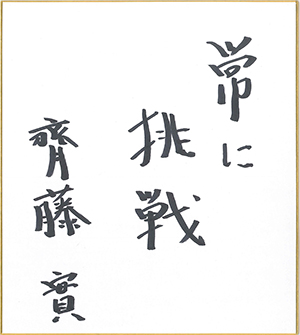 常に
挑戦
齊藤實